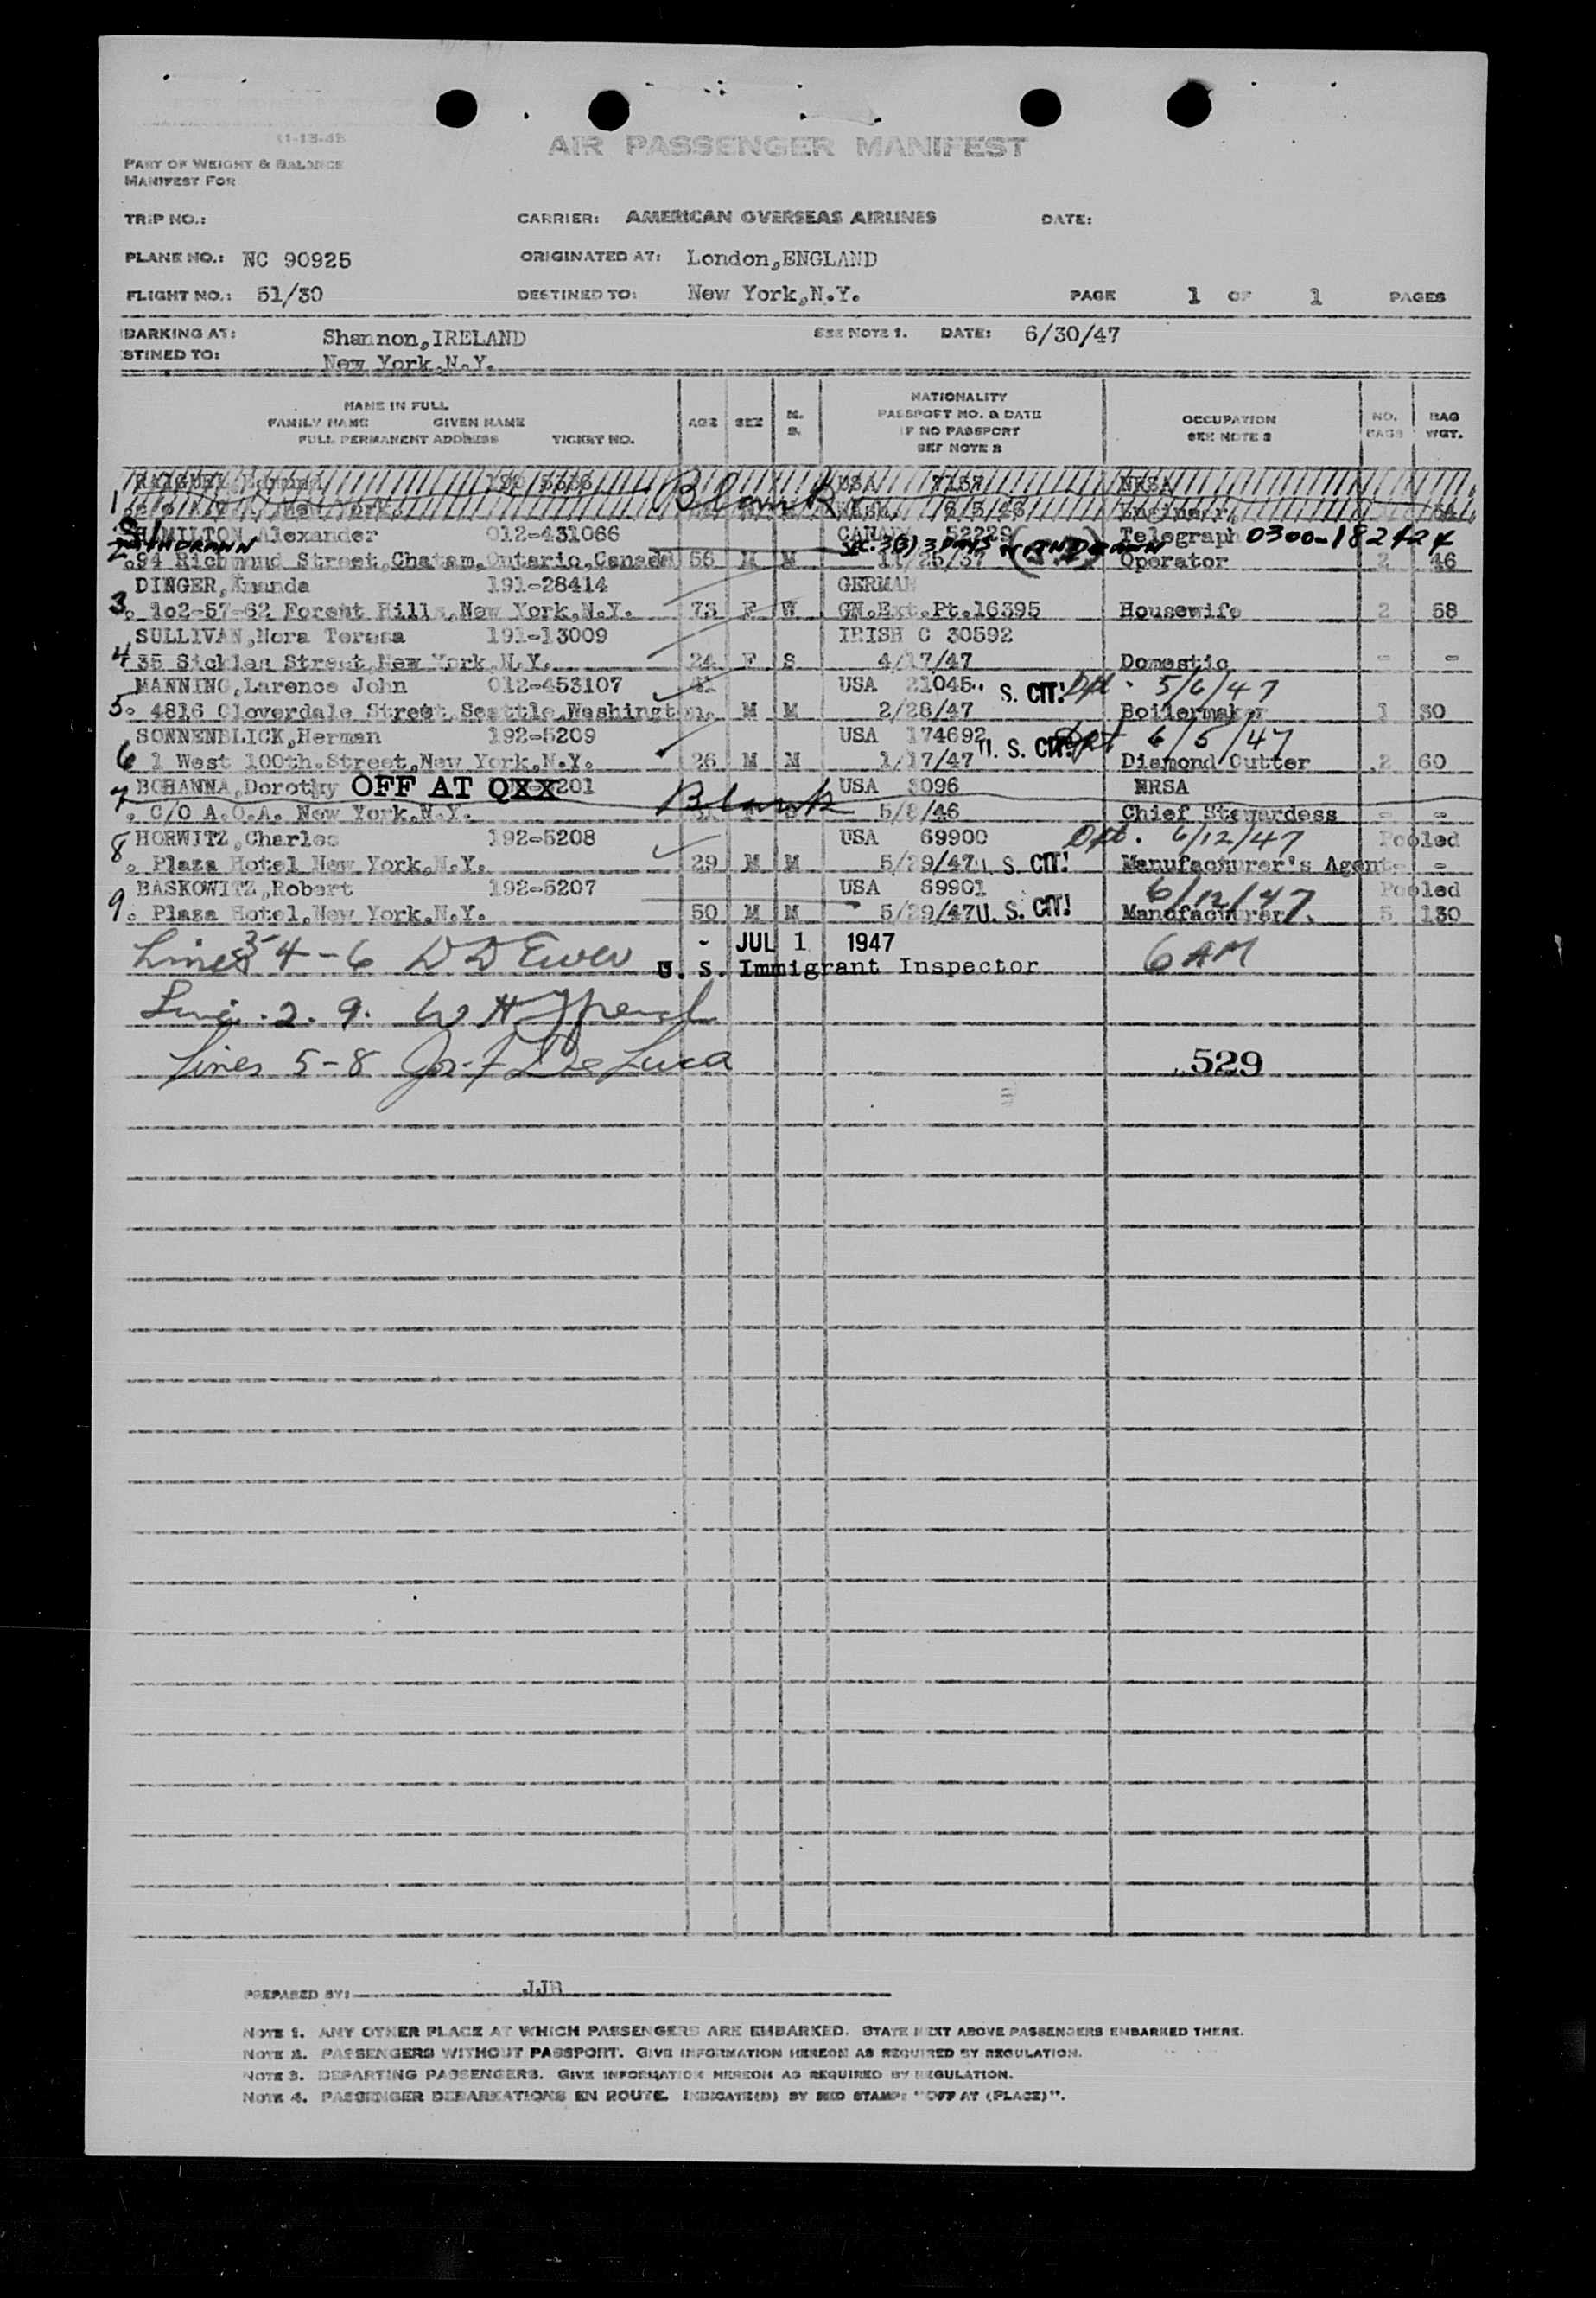 11-13-45
AIR PASSENGER MANIFEST
PART OF WEIGHT & BALANCE
MANIFEST FOR
TRIP NO.: CARRIER: AMERICAN OVERSEAS AIRLINES DATE:
PLANE NO.: NC 90925 ORIGINATED AT: London,ENGLAND
FLIGHT NO.: 51/30 DESTINED TO: New York,N.Y. PAGE 1 OF 1 PAGES
BARKING AT: Shannon,IRELAND SEE NOTE 1. DATE: 6/30/47
STINED TO: New York,N.Y.
NAME IN FULL
FAMILY NAME GIVEN NAME
FULL PERMANENT ADDRESS TICKET NO. AGE SEX M. S.
NATIONALITY
PASSPORT NO. & DATE
IF NO PASSPORT
SEE NOTE 2
OCCUPATION
SEE NOTE 3
NO. BAGS BAG WGT.
1 Blank USA NRSA
HAMILTON,Alexander 012-431066 CANA 52229 Telegraph 0300-182424
2. WITHDRAWN 94 Richmund Street,Chatam,Ontario,Canada 56 M M Operator 2 46
DINGER,Amanda 191-28414 GERMAN
3. 102-57-62 Forest Hills,New York,N.Y. 73 F W GN.Ext.Pt.16395 Housewife 2 58
SULLIVAN,Nora Teresa 191-13009 IRISH C 30592
4 35 Sicklen Street,New York,N.Y. 24 F S 4/17/47 Domestic - -
MANNING,Larence John 012-453107 41 USA 21045 S. CIT! Dpt. 5/6/47
5. 4816 Cloverdale Street,Seattle,Washington. M M 2/28/47 Boilermaker 1 30
SONNENBLICK,Herman 192-5209 USA 174692 U. S. CIT! Dpt 6/5/47
6 1 West 100th.Street,New York,N.Y. 26 M M 1/17/47 Diamond Cutter 2 60
BOHANNA,Dorothy OFF AT QXX 201 Blank USA 3096 NRSA
7. C/O A.O.A. New York,N.Y. 5/8/46 Chief Stewardess - -
HORWITZ,Charles 192-5208 USA 69900 Dpt. 6/12/47 Pooled
8. Plaza Hotel New York,N.Y. 29 M M 5/29/47 U. S. CIT! Manufacturer's Agent - -
BASKOWITZ,Robert 192-5207 USA 69901 6/12/47 Pooled
9. Plaza Hotel,New York,N.Y. 50 M M 5/29/47 U. S. CIT! Manufacturer. 5 130
Lines 3 4-6 D D Ewen - JUL 1 1947 6 AM
U. S. Immigrant Inspector
Line. 2. 9. W H
Lines 5-8 Jos. F De Luca 529
PREPARED BY: JJB
NOTE 1. ANY OTHER PLACE AT WHICH PASSENGERS ARE EMBARKED. STATE NEXT ABOVE PASSENGERS EMBARKED THERE.
NOTE 2. PASSENGERS WITHOUT PASSPORT. GIVE INFORMATION HEREON AS REQUIRED BY REGULATION.
NOTE 3. DEPARTING PASSENGERS. GIVE INFORMATION HEREON AS REQUIRED BY REGULATION.
NOTE 4. PASSENGER DEBARKATIONS EN ROUTE. INDICATE(D) BY RED STAMP: "OFF AT (PLACE)".